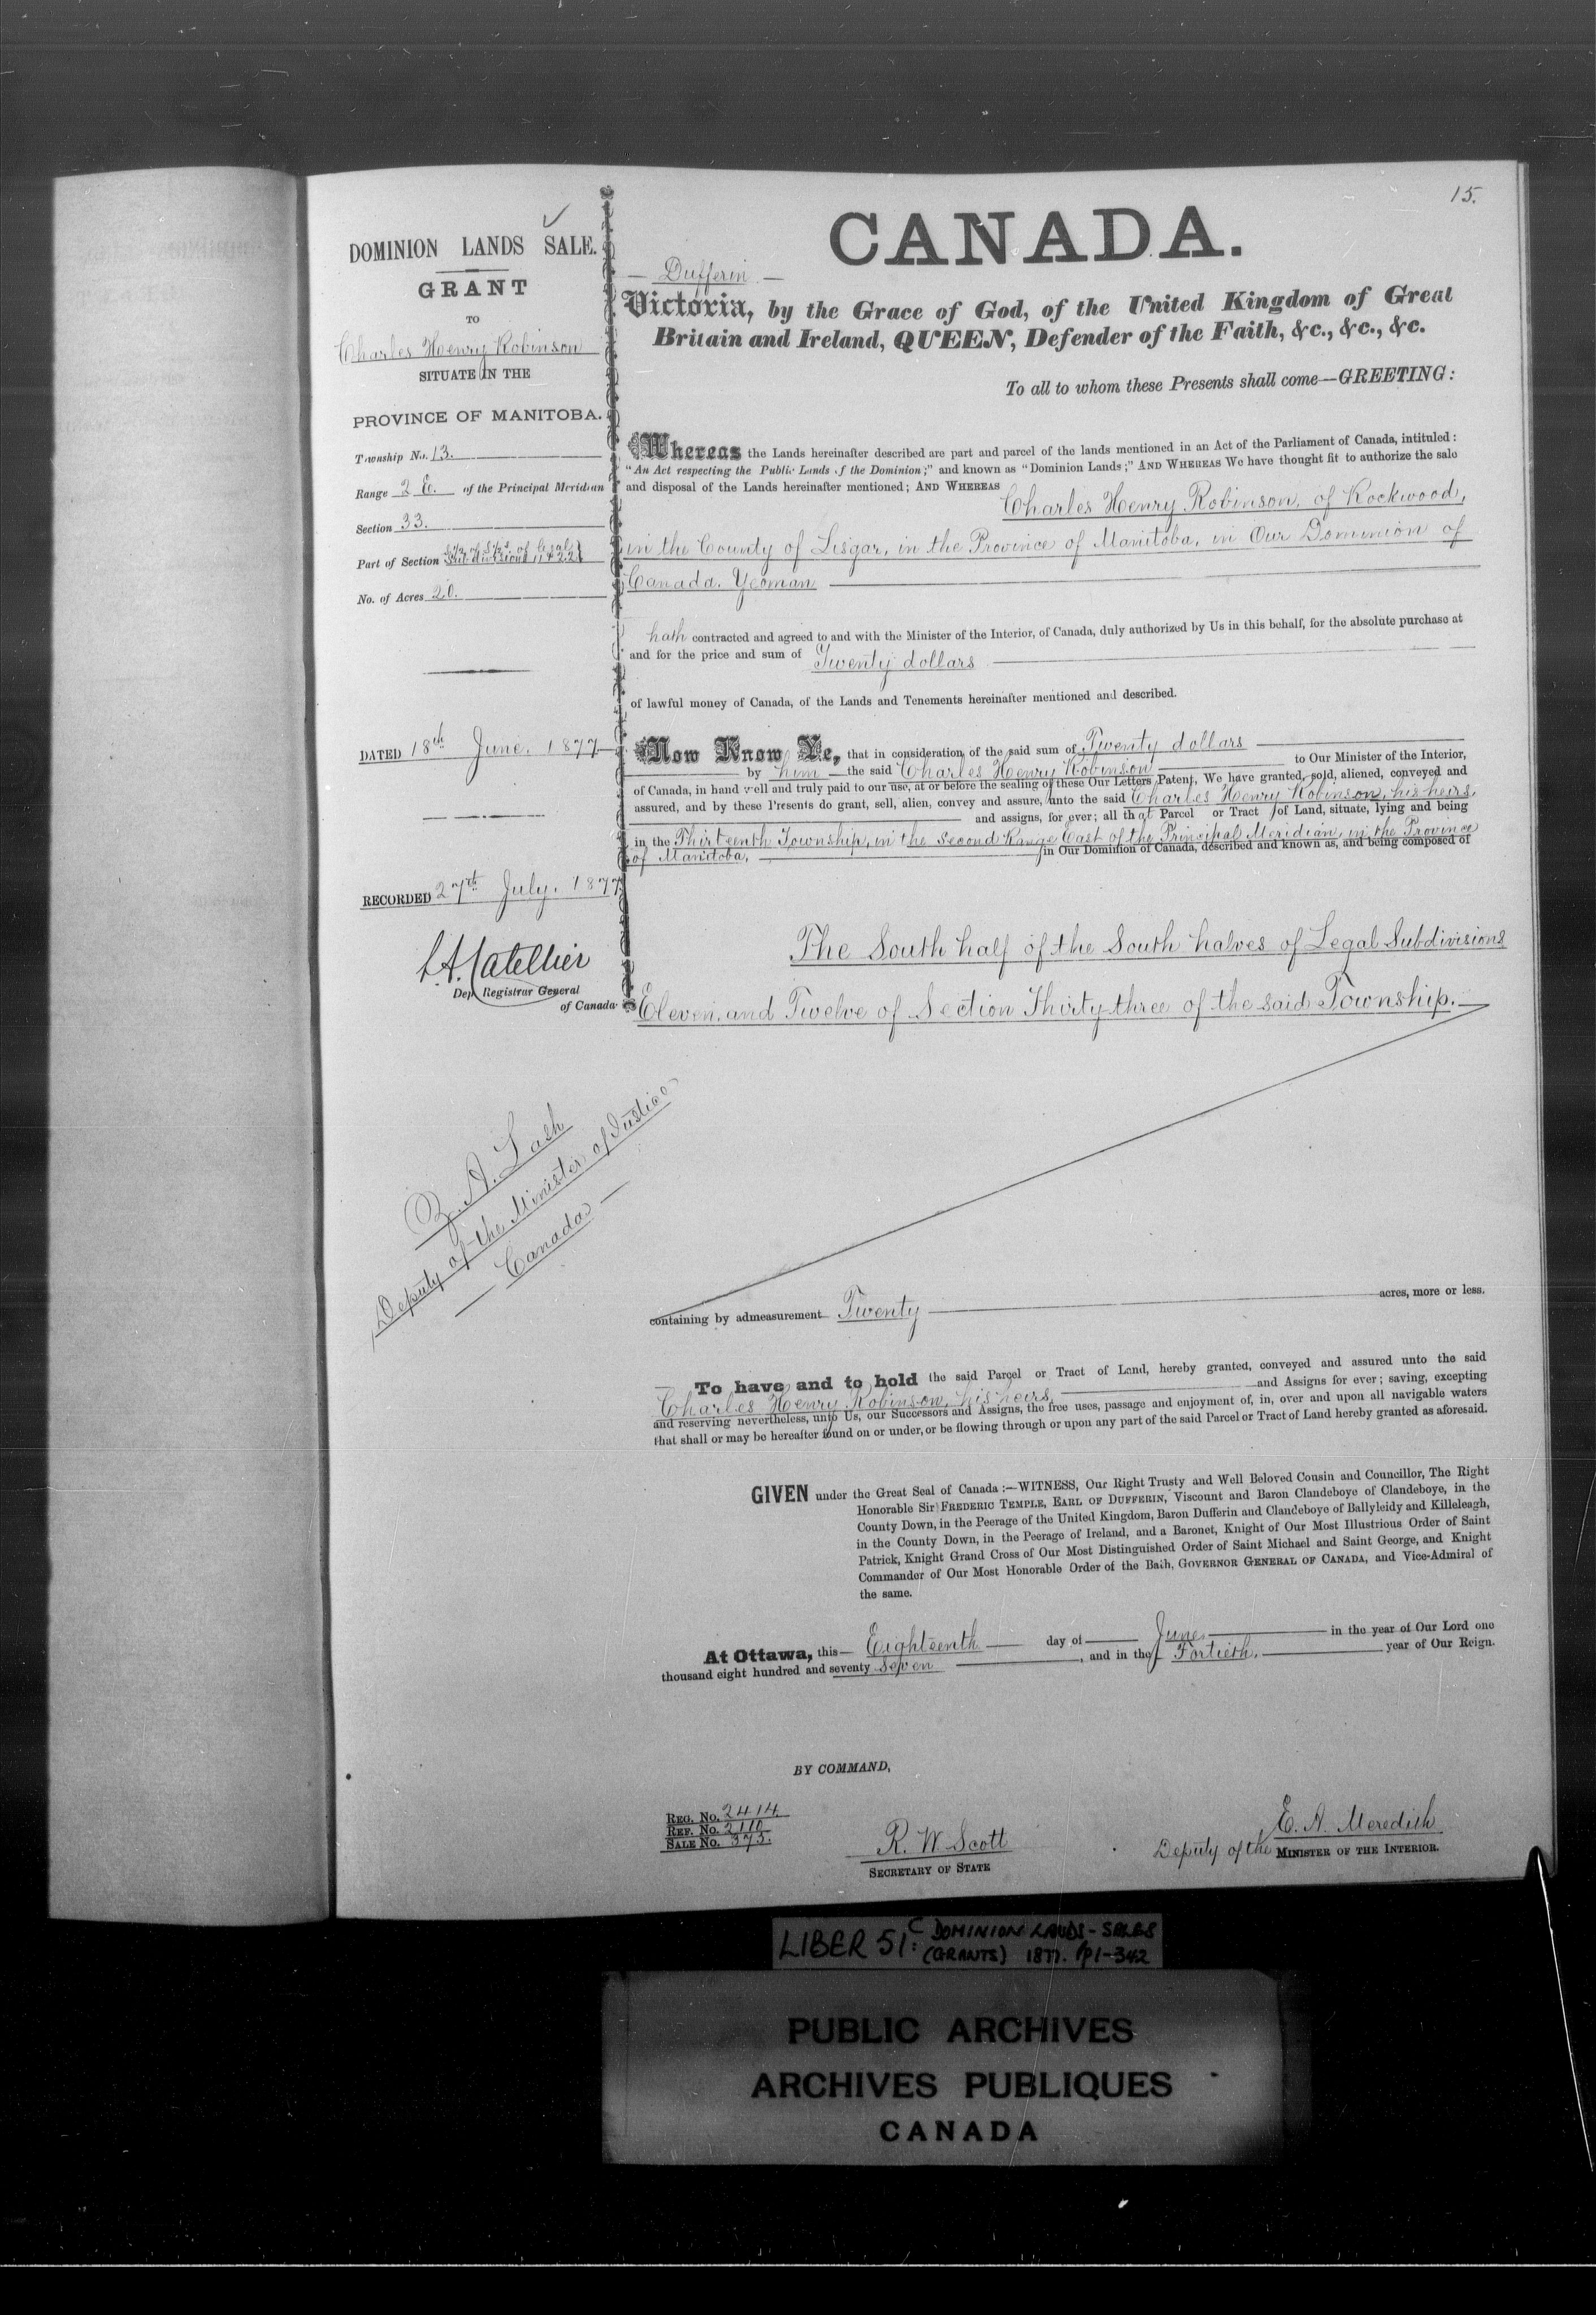 15.
DOMINION LANDS SALE.
GRANT
TO
Charles Henry Robinson
SITUATE IN THE
PROVINCE OF MANITOBA.
Township No. 13.
Range 2 E. of the Principal Meridian
Section 33.
Part of Section S½ of S½s. of Legal Subdivisions
No. of Acres 20.
DATED 18th June. 1877
RECORDED 27th July. 1877
L.A. Catellier
Dep. Registrar General
of Canada
Z. A. Lash
Deputy of the Minister of Justice
Canada
CANADA.
Dufferin
Victoria, by the Grace of God, of the United Kingdom of Great
Britain and Ireland, QUEEN, Defender of the Faith, &c., &c., &c.
To all to whom these Presents shall come—GREETING:
Whereas the Lands hereinafter described are part and parcel of the lands mentioned in an Act of the Parliament of Canada, intituled:
"An Act respecting the Public Lands of the Dominion;" and known as "Dominion Lands;" AND WHEREAS We have thought fit to authorize the sale
and disposal of the Lands hereinafter mentioned; AND WHEREAS
Charles Henry Robinson, of Rockwood,
in the County of Lisgar, in the Province of Manitoba, in Our Dominion of
Canada. Yeoman
hath contracted and agreed to and with the Minister of the Interior, of Canada, duly authorized by Us in this behalf, for the absolute purchase at
and for the price and sum of Twenty dollars
of lawful money of Canada, of the Lands and Tenements hereinafter mentioned and described.
Now Know Ye, that in consideration of the said sum of Twenty dollars
by him the said Charles Henry Robinson to Our Minister of the Interior,
of Canada, in hand well and truly paid to our use, at or before the sealing of these Our Letters Patent, We have granted, sold, aliened, conveyed and
assured, and by these Presents do grant, sell, alien, convey and assure, unto the said Charles Henry Robinson, his heirs,
and assigns, for ever; all that Parcel or Tract of Land, situate, lying and being
in the Thirteenth Township, in the Second Range East of the Principal Meridian, in the Province
of Manitoba, in Our Dominion of Canada, described and known as, and being composed of
The South half of the South halves of Legal Subdivisions
Eleven and Twelve of Section Thirty-three of the said Township.
containing by admeasurement Twenty acres, more or less.
To have and to hold the said Parcel or Tract of Land, hereby granted, conveyed and assured unto the said
Charles Henry Robinson, his heirs, and Assigns for ever; saving, excepting
and reserving nevertheless, unto Us, our Successors and Assigns, the free uses, passage and enjoyment of, in, over and upon all navigable waters
that shall or may be hereafter found on or under, or be flowing through or upon any part of the said Parcel or Tract of Land hereby granted as aforesaid.
GIVEN under the Great Seal of Canada:—WITNESS, Our Right Trusty and Well Beloved Cousin and Councillor, The Right
Honorable Sir FREDERIC TEMPLE, EARL OF DUFFERIN, Viscount and Baron Clandeboye of Clandeboye, in the
County Down, in the Peerage of the United Kingdom, Baron Dufferin and Clandeboye of Ballyleidy and Killeleagh,
in the County Down, in the Peerage of Ireland, and a Baronet, Knight of Our Most Illustrious Order of Saint
Patrick, Knight Grand Cross of Our Most Distinguished Order of Saint Michael and Saint George, and Knight
Commander of Our Most Honorable Order of the Bath, GOVERNOR GENERAL OF CANADA, and Vice-Admiral of
the same.
At Ottawa, this Eighteenth day of June in the year of Our Lord one
thousand eight hundred and seventy seven, and in the Fortieth. year of Our Reign.
BY COMMAND,
REG. No. 2414.
REF. No. 2110
SALE No. 375.
R. W. Scott
SECRETARY OF STATE
E. A. Meredith
Deputy of the MINISTER OF THE INTERIOR.
LIBER 51: C DOMINION LANDS - SALES
(GRANTS) 1877. pp1-342
PUBLIC ARCHIVES
ARCHIVES PUBLIQUES
CANADA